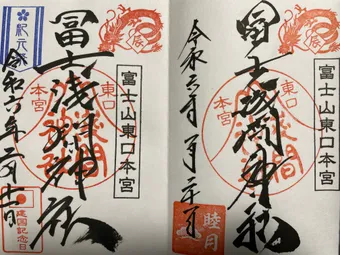 辰
富士山東口本宮
東口
本宮
富士浅間神社
令和六年
睦月
辰
富士山東口本宮
東口
本宮
富士浅間神社
紀元祭
令和六年二月十一日
建国記念日